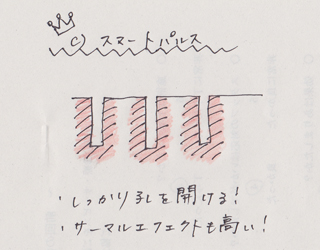 c) スマートパルス
・しっかり孔を開ける!
・サーマルエフェクトも高い!